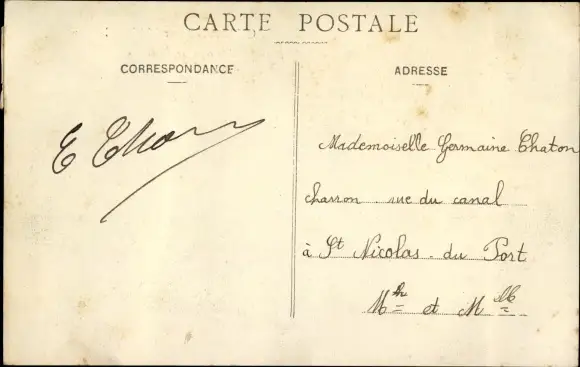 CARTE POSTALE
CORRESPONDANCE
ADRESSE
E
Mademoiselle Germaine Chaton
charron. rue du canal
à St Nicolas. du Port
Mthe et Mlle